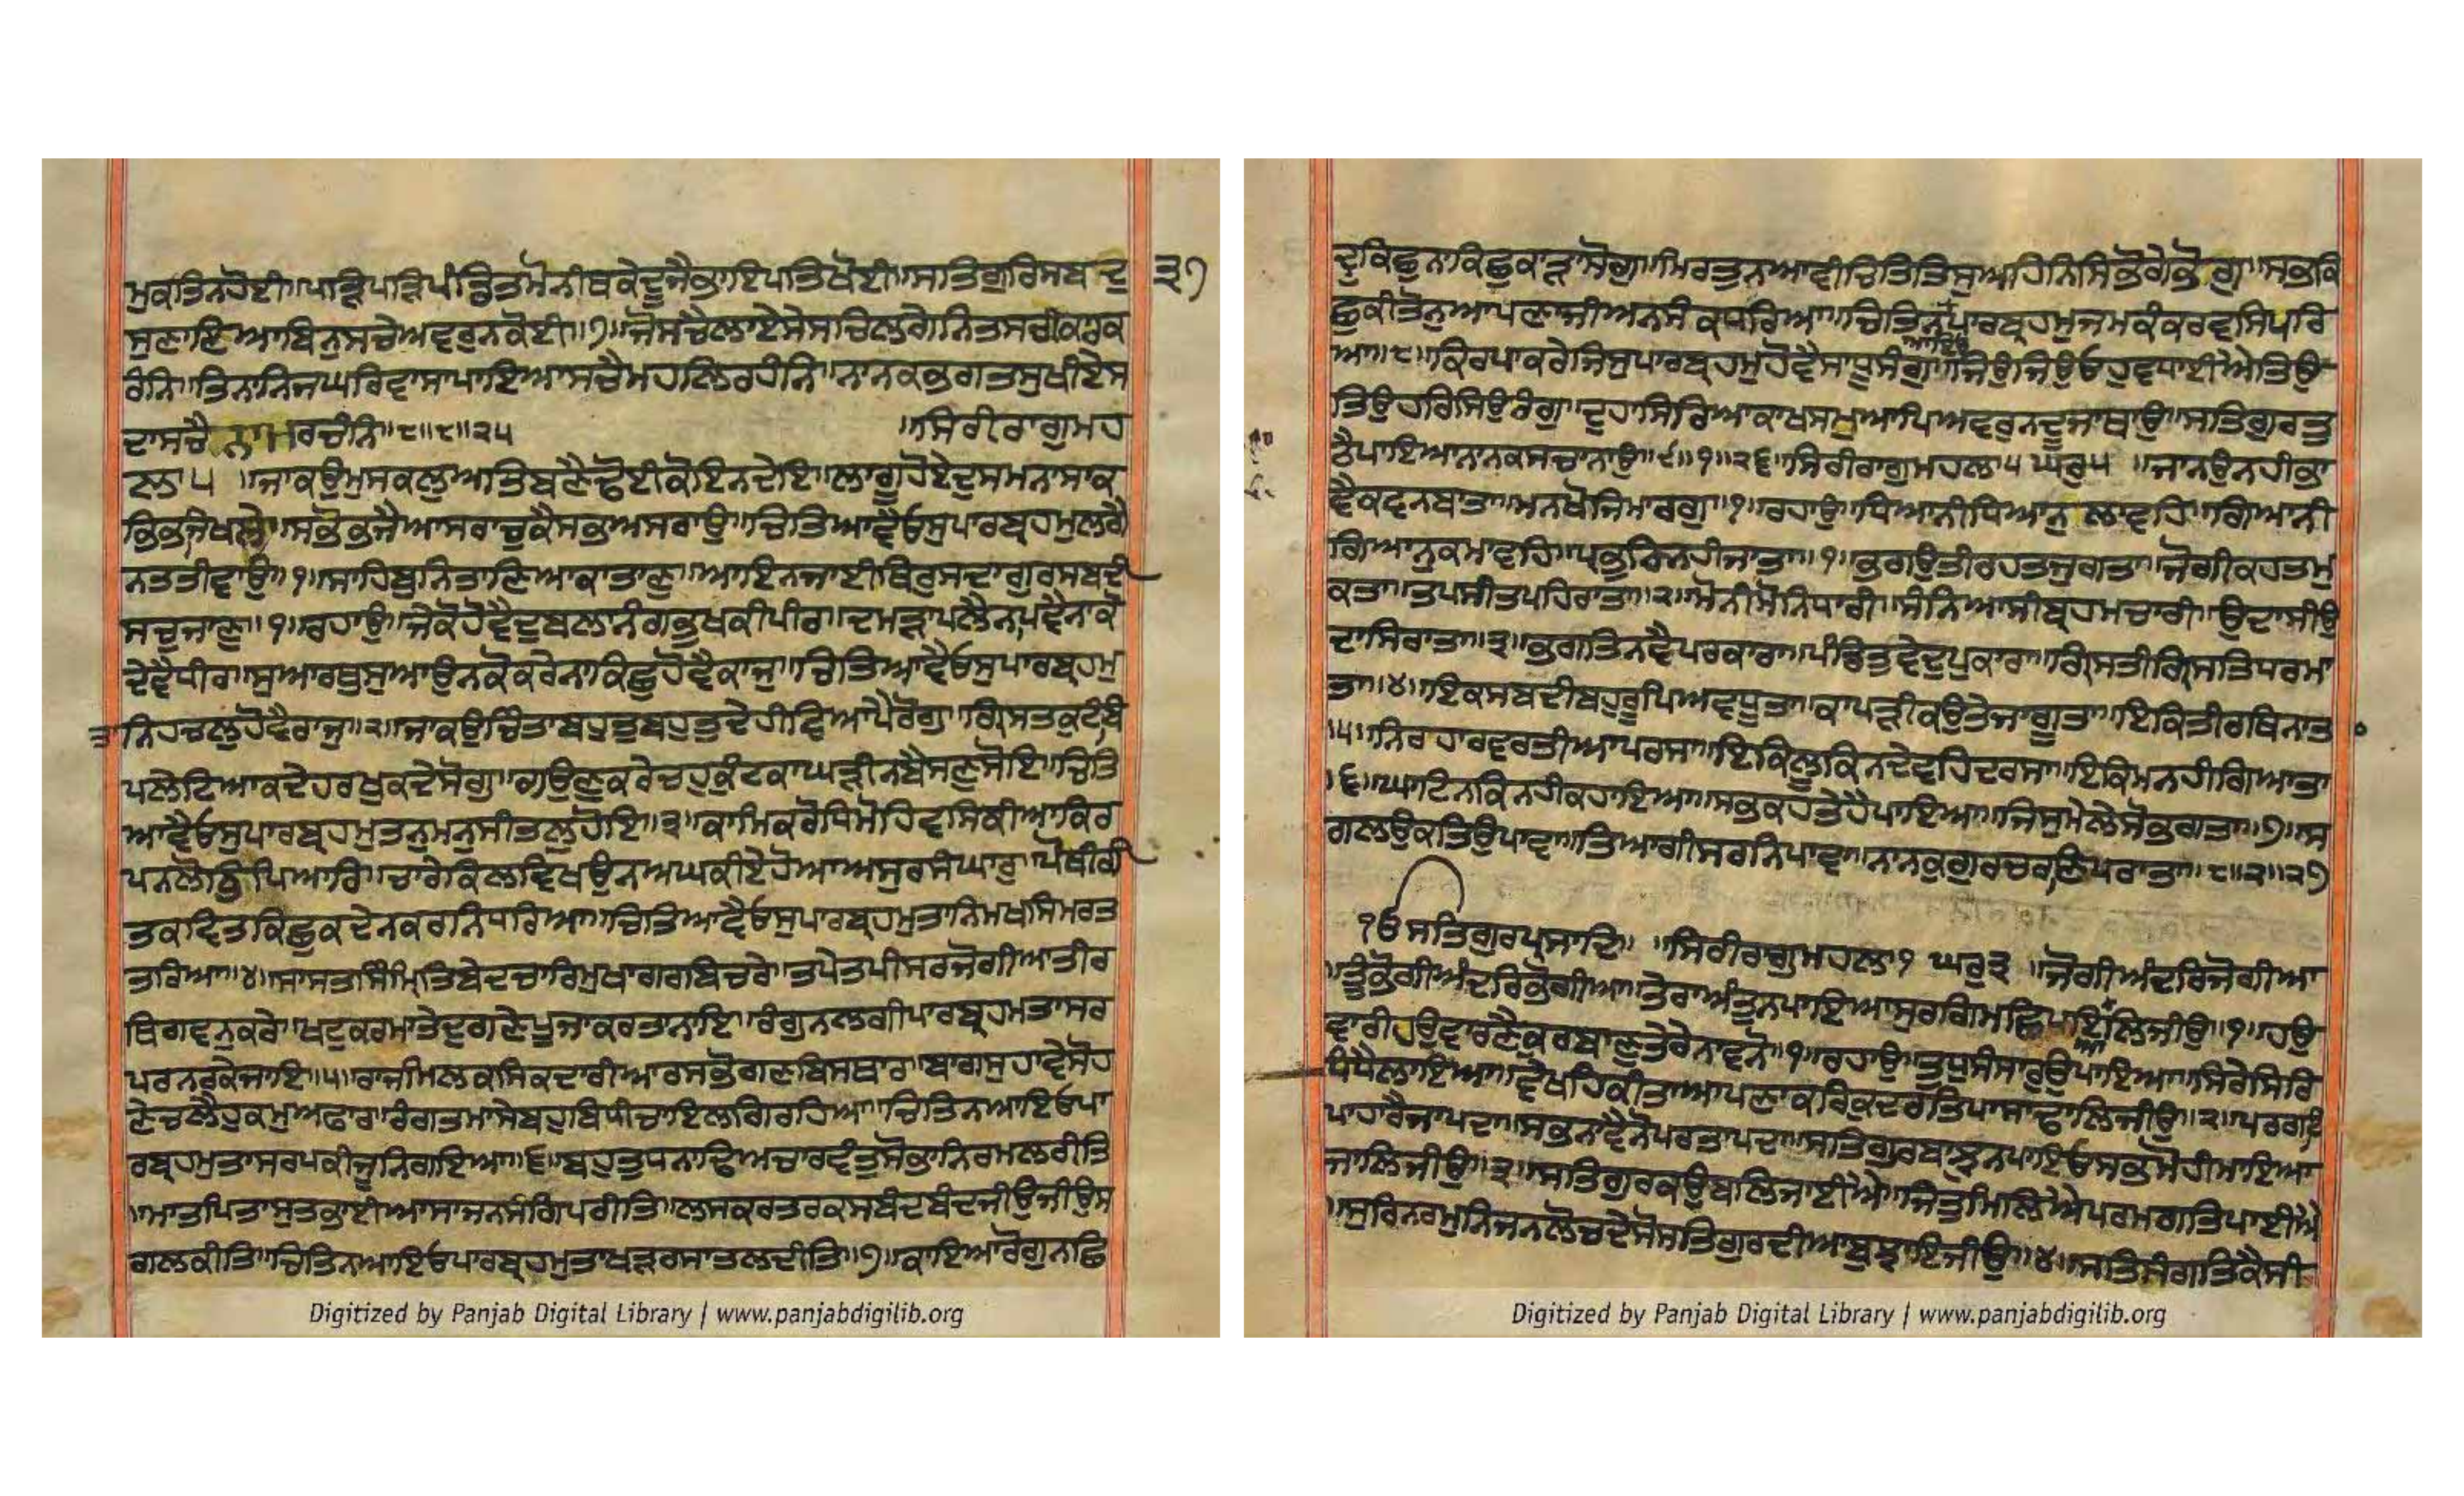 ਮੁਕਤਿਨਹੋਈ॥ਪੜ੍ਹਿਪੜ੍ਹਿਪੰਡਿਤਮੋਨੀਥਕੇਦੂਜੈਭਾਇਪਤਿਖੋਈ॥ਸਤਿਗੁਰਿਸਬਦੁ ੩੭
ਸੁਣਾਇਆਬਿਨੁਸਚੇਅਵਰੁਨਕੋਈ॥੭॥ਜੋਸਚੈਲਾਏਸੇਸਚਿਲਗੇਨਿਤਸਚੀਕਾਰਕ
ਰੰਨਿ॥ਤਿਨਾਨਿਜਘਰਿਵਾਸਾਪਾਇਆਸਚੈਮਹਲਿਰਹੰਨਿ॥ਨਾਨਕਭਗਤਸੁਖੀਏਸ
ਦਾਸਚੈਨਾਮਿਰਚੰਨਿ॥੮॥੮॥੨੫ ॥ਸਿਰੀਰਾਗੁਮਹ
ਲਾ੫ ॥ਜਾਕਉਮੁਸਕਲੁਅਤਿਬਣੈਢੋਈਕੋਇਨਦੇਇ॥ਲਾਗੂਹੋਏਦੁਸਮਨਾਸਾਕ
ਭਿਭਜਿਖਲੇ॥ਸਭੋਭਜੈਆਸਰਾਚੁਕੈਸਭੁਅਸਰਾਉ॥ਚਿਤਿਆਵੈਓਸੁਪਾਰਬ੍ਰਹਮੁਲਗੈ
ਨਤਤੀਵਾਉ॥੧॥ਸਾਹਿਬੁਨਿਤਾਣਿਆਕਾਤਾਣੁ॥ਆਇਨਜਾਈਥਿਰੁਸਦਾਗੁਰਸਬਦੀ
ਸਚੁਜਾਣੁ॥੧॥ਰਹਾਉ॥ਜੇਕੋਹੋਵੈਦੁਬਲਾਨੰਗਭੁਖਕੀਪੀਰ॥ਦਮੜਾਪਲੈਨਪਵੈਨਾਕੋ
ਦੇਵੈਧੀਰ॥ਸੁਆਰਥੁਸੁਆਉਨਕੋਕਰੇਨਾਕਿਛੁਹੋਵੈਕਾਜੁ॥ਚਿਤਿਆਵੈਓਸੁਪਾਰਬ੍ਰਹਮੁ
ਤਾਨਿਹਚਲੁਹੋਵੈਰਾਜੁ॥੨॥ਜਾਕਉਚਿੰਤਾਬਹੁਤੁਬਹੁਤੁਦੇਹੀਵਿਆਪੈਰੋਗੁ॥ਗ੍ਰਿਸਤਕੁਟੰਬਿ
ਪਲੇਟਿਆਕਦੇਹਰਖੁਕਦੇਸੋਗੁ॥ਗਉਣੁਕਰੇਚਹੁਕੁੰਟਕਾਘੜੀਨਬੈਸਣੁਸੋਇ॥ਚਿਤਿ
ਆਵੈਓਸੁਪਾਰਬ੍ਰਹਮੁਤਨੁਮਨੁਸੀਤਲੁਹੋਇ॥੩॥ਕਾਮਿਕਰੋਧਿਮੋਹਿਵਸਿਕੀਆਕਿਰ
ਪਨਲੋਭਿਪਿਆਰਿ॥ਚਾਰੇਕਿਲਵਿਖਉਨਅਘਕੀਏਹੋਆਅਸੁਰਸੰਘਾਰੁ॥ਪੋਥੀਗੀ
ਤਕਵਿਤਕਿਛੁਕਦੇਨਕਰਨਿਧਰਿਆ॥ਚਿਤਿਆਵੈਓਸੁਪਾਰਬ੍ਰਹਮੁਤਾਨਿਮਖਸਿਮਰਤ
ਤਰਿਆ॥੪॥ਸਾਸਤਸਿੰਮ੍ਰਿਤਿਬੇਦਚਾਰਿਮੁਖਾਗਰਬਿਚਰੇ॥ਤਪੇਤਪੀਸਰਜੋਗੀਆਤੀਰ
ਥਿਗਵਨੁਕਰੇ॥ਖਟੁਕਰਮਾਤੇਦੁਗਣੇਪੂਜਾਕਰਤਨਾਇ॥ਰੰਗੁਨਲਗੀਪਾਰਬ੍ਰਹਮਤਾਸਰ
ਪਰਨਰਕੇਜਾਇ॥੫॥ਰਾਜੀਮਲਕਸਿਕਦਾਰੀਆਰਸਭੋਗਣਬਿਸਥਾਰ॥ਬਾਗਸੁਹਾਵੇਸੋਹ
ਣੇਚਲੈਹੁਕਮੁਅਫਾਰ॥ਰੰਗਤਮਾਸੇਬਹੁਬਿਧੀਚਾਇਲਗਿਰਹਿਆ॥ਚਿਤਿਨਆਇਓਪਾ
ਰਬ੍ਰਹਮੁਤਾਸਰਪਕੀਜੂਨਿਗਇਆ॥੬॥ਬਹੁਤੁਧਨਾਢਿਅਚਾਰਵੰਤੁਸੋਭਾਨਿਰਮਲਰੀਤਿ
॥ਮਾਤਪਿਤਾਸੁਤਭਾਈਆਸਾਜਨਸੰਗਿਪਰੀਤਿ॥ਲਸਕਰਤਰਕਸਬੰਦਬੰਦਜੀਉਜੀਉਸ
ਗਲਕੀਤਿ॥ਚਿਤਿਨਆਇਓਪਾਰਬ੍ਰਹਮੁਤਾਖੜਰਸਾਤਲਦੀਤਿ॥੭॥ਕਾਇਆਰੋਗੁਨਛਿ
Digitized by Panjab Digital Library | www.panjabdigilib.org
ਦ੍ਰੁਕਿਛੁਨਾਕਿਛੁਕਾੜਾਸੋਗੁ॥ਮਿਰਤੁਨਆਵੀਚਿਤਿਤਿਸੁਅਹਿਨਿਸਿਭੋਗੈਭੋਗੁ॥ਸਭਕਿ
ਛੁਕੀਤੋਨੁਆਪਣਾਜੀਅਨਸੰਕਧਰਿਆ॥ਚਿਤਿਨਪਾਰਬ੍ਰਹਮੁਜਮਕੰਕਰਵਸਿਪਰਿ
ਆਇਓ
ਆ॥੮॥ਕਿਰਪਾਕਰੇਜਿਸੁਪਾਰਬ੍ਰਹਮੁਹੋਵੈਸਾਧੂਸੰਗੁ॥ਜਿਉਜਿਉਓਹੁਵਧਾਈਐਤਿਉ
ਤਿਉਹਰਿਸਿਉਰੰਗੁ॥ਦੁਹਾਸਿਰਿਆਕਾਖਸਮੁਆਪਿਅਵਰੁਨਦੂਜਾਥਾਉ॥ਸਤਿਗੁਰਤੁ
ਠੈਪਾਇਆਨਾਨਕਸਚਾਨਾਉ॥੯॥੧॥੨੬॥ਸਿਰੀਰਾਗੁਮਹਲਾ੫ਘਰੁ੫ ॥ਜਾਨਉਨਹੀਭਾ
ਵੈਕਵਨਬਾਤਾ॥ਮਨਖੋਜਿਮਾਰਗੁ॥੧॥ਰਹਾਉ॥ਧਿਆਨੀਧਿਆਨੁਲਾਵਹਿ॥ਗਿਆਨੀ
ਗਿਆਨੁਕਮਾਵਹਿ॥ਪ੍ਰਭੁਕਿਨਹੀਜਾਤਾ॥੧॥ਭਗਉਤੀਰਹਤਜੁਗਤਾ॥ਜੋਗੀਕਹਤਮੁ
ਕਤਾ॥ਤਪਸੀਤਪਹਿਰਾਤਾ॥੨॥ਮੋਨੀਮੋਨਿਧਾਰੀ॥ਸੰਨਿਆਸੀਬ੍ਰਹਮਚਾਰੀ॥ਉਦਾਸੀਉ
ਦਾਸਿਰਾਤਾ॥੩॥ਭਗਤਿਨਵੈਪਰਕਾਰਾ॥ਪੰਡਿਤੁਵੇਦੁਪੁਕਾਰਾ॥ਗ੍ਰਿਸਤੀਗ੍ਰਿਸਤਿਧਰਮਾ
ਤਾ॥੪॥ਇਕਸਬਦੀਬਹੁਰੂਪਿਅਵਧੂਤਾ॥ਕਾਪੜੀਕਉਤੇਜਾਗੂਤਾ॥ਇਕਿਤੀਰਥਿਨਾਤਾ
॥੫॥ਨਿਰਹਾਰਵਰਤੀਆਪਰਸਾ॥ਇਕਿਲੂਕਿਨਦੇਵਹਿਦਰਸਾ॥ਇਕਿਮਨਹੀਗਿਆਤਾ
॥੬॥ਘਾਟਿਨਕਿਨਹੀਕਹਾਇਆ॥ਸਭਕਹਤੇਹੈਪਾਇਆ॥ਜਿਸੁਮੇਲੇਸੋਭਗਤਾ॥੭॥ਸ
ਗਲਉਕਤਿਉਪਾਵਾ॥ਤਿਆਗੀਸਰਨਿਪਾਵਾ॥ਨਾਨਕੁਗੁਰਚਰਣਿਪਰਾਤਾ॥੮॥੨॥੨੭
ੴਸਤਿਗੁਰਪ੍ਰਸਾਦਿ॥ ॥ਸਿਰੀਰਾਗੁਮਹਲਾ੧ ਘਰੁ੩ ॥ਜੋਗੀਅੰਦਰਿਜੋਗੀਆ
॥ਤੂੰਭੋਗੀਅੰਦਰਿਭੋਗੀਆ॥ਤੇਰਾਅੰਤੁਨਪਾਇਆਸੁਰਗਿਮਛਿਪਇਆਲਿਜੀਉ॥੧॥ਹਉ
ਵਾਰੀਹਉਵਾਰਣੈਕੁਰਬਾਣੁਤੇਰੇਨਾਵਨੋ॥੧॥ਰਹਾਉ॥ਤੁਧੁਸੰਸਾਰੁਉਪਾਇਆ॥ਸਿਰੇਸਿਰਿ
ਧੰਧੈਲਾਇਆ॥ਵੇਖਹਿਕੀਤਾਆਪਣਾਕਰਿਕੁਦਰਤਿਪਾਸਾਢਾਲਿਜੀਉ॥੨॥ਪਰਗਟਿ
ਪਾਹਾਰੈਜਾਪਦਾ॥ਸਭੁਨਾਵੈਨੋਪਰਤਾਪਦਾ॥ਸਤਿਗੁਰਬਾਝੁਨਪਾਇਓਸਭਮੋਹੀਮਾਇਆ
ਜਾਲਿਜੀਉ॥੩॥ਸਤਿਗੁਰਕਉਬਲਿਜਾਈਐ॥ਜਿਤੁਮਿਲਿਐਪਰਮਗਤਿਪਾਈਐ
॥ਸੁਰਿਨਰਮੁਨਿਜਨਲੋਚਦੇਸੋਸਤਿਗੁਰਦੀਆਬੁਝਾਇਜੀਉ॥੪॥ਸਤਿਸੰਗਤਿਕੈਸੀ
Digitized by Panjab Digital Library | www.panjabdigilib.org